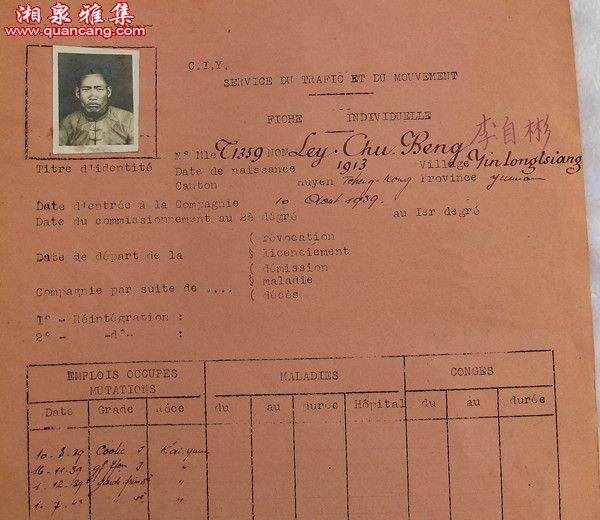 湘泉雅集
www.quancang.com
C.I.Y.
SERVICE DU TRAFIC ET DU MOUVEMENT
FICHE INDIVIDUELLE
N° Mle T1359 NOM Ley Chu Beng 李自彬
Titre d'identité
Date de naissance 1913 Village Yin longtsiang
Canton Huyen Tcheng-Kong Province Yunnan
Date d'entrée à la Compagnie 10 Août 1939.
Date du commissionnement au 2è dégré au 1er degré
( révocation
§ licenciement
Date de départ de la
( démission
§ maladie
Compagnie par suite de ....
( décès
1° - Réintégration :
2° - -d°- :
EMPLOIS OCCUPES MALADIES CONGES
MUTATIONS
Date Grade Réce du au durée Hôpital du au durée
10-8-39 Coolie J Kai-yuen
16-11-39 J "
1-12-39 "
1-7- " "